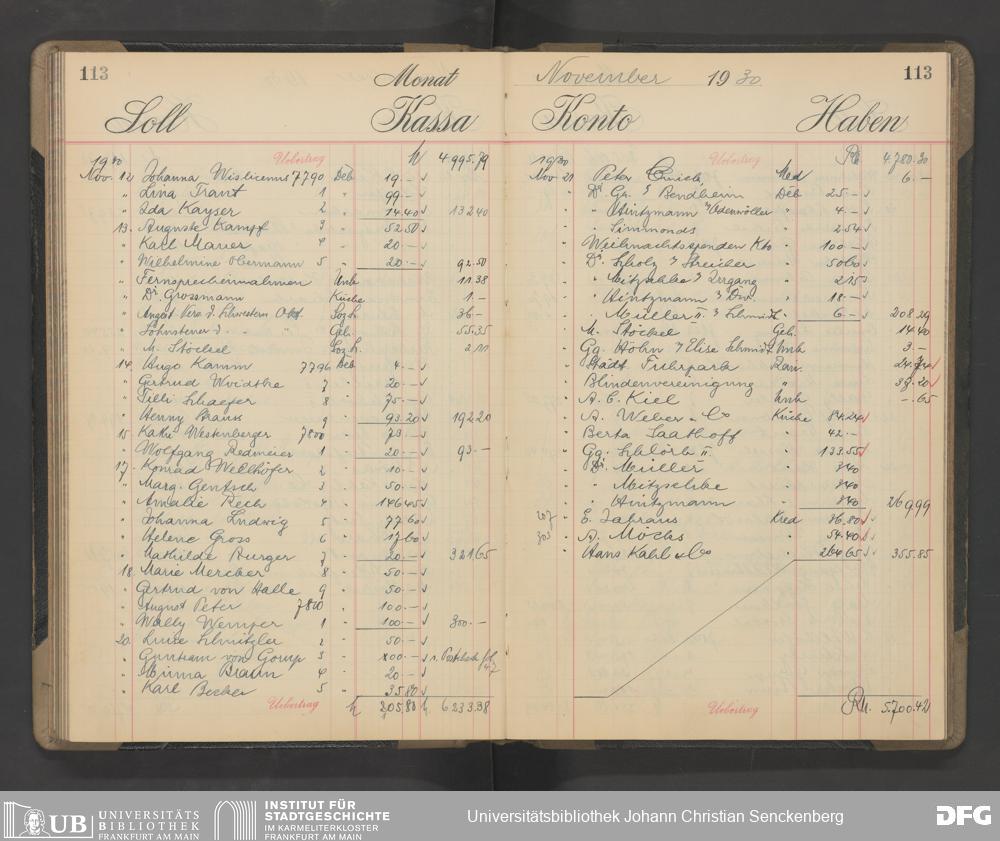 113 Monat November 1930 113
Soll Kassa Konto Haben
1930 Uebertrag 4995.79
Nov. 12 Johanna Wislicenus 7790 Deb 19.–
" Lina Trant 1 " 99.–
" Ida Kayser 2 " 14.40 132 40
13. Auguste Kampf 3 " 52.50
" Karl Maurer 4 " 20.–
" Wilhelmine Obermann 5 " 20.– 92.50
" Fernsprecheinnahmen Unk 11 38
" Dr. Grossmann Küche 1.–
" 36–
" Geh. 55.35
" M. Stöckel Soz.h. 2 11
14. Hugo Kamm 7796 Deb 4.–
" Gertrud Woidtke 7 " 20.–
" Tilli Schaefer 8 " 75.–
" Henny 9 " 93.20 192 20
15 Käthe Westenberger 7800 " 73.–
" Wolfgang Redmeier 1 " 20.– 93.–
17. Konrad Wellhöfer 2 " 10.–
" Marg. Gentsch 3 " 50.–
" Amalie Rech 4 " 146.45
" Johanna Ludwig 5 " 77.60
" Helene Gross 6 " 17.60
" Mathilde Burger 7 " 20.– 321 65
18 Marie Mercker 8 " 50.–
" Gertrud von Halle 9 " 50.–
" August Peter 7810 " 100.–
" Wally Wemper 1 " 100.– 300.–
20. Schnitzler 2 " 50.–
" Guntram von 3 " 100.–
" Minna Braun 4 " 20.–
" Karl Becker 5 " 35.80
Uebertrag 205.80 6233.38
1930 Uebertrag Rm 4.780.30
Nov. 21 Peter Med 6.–
" Dr. Gr. & Bendheim Deb 25.–
" " Hintzmann & Odenwöller " 4.–
" " Simmonds " 2.54
" Weihnachtsspenden Kto " 100.–
" Dr. Scholz & Streicher " 50.60
" " Mitzschke & Irrgang " 2.15
" " Hintzmann & Div. " 18.–
" " Müller II. & Schmidt " 6.– 208 29
" M. Stöckel Geh. 14.40
" Gg. Höhn & Elise Schmidt Unk 3.–
" Städt Fuhrpark Ran. 24.
" Blindenvereinigung " 38.20
" A. E. Kiel Unk –.65
" A. Weber & Co Küche 84.24
" Berta Saathoff " 42.–
" Gg. Schlörb II. " 133.55
" Dr. Müller " 3 40
" " Mitzschke " 3 40
" " Hintzmann " 3 40 269.99
207 " E. Kred 36.80
305 " A. Möchs " 54.40
" Hans Kahl & Co " 264.65 355.85
Uebertrag Rm. 5.700.42
UB UNIVERSITÄTS
BIBLIOTHEK
FRANKFURT AM MAIN
INSTITUT FÜR
STADTGESCHICHTE
IM KARMELITERKLOSTER
FRANKFURT AM MAIN
Universitätsbibliothek Johann Christian Senckenberg
DFG